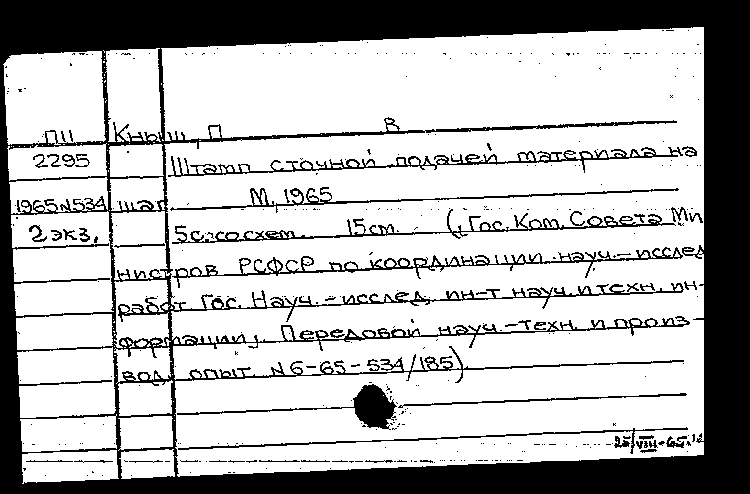 ПII Кныш, П В
2295 Штамп с точной подачей материала на
1965 N534 шаг. М, 1965
2 экз. 5с. со схем. 15см. (Гос. Ком. Совета Ми
нистров РСФСР по координации науч.-исслед
работ Гос. Науч.-исслед. ин-т науч. и техн. ин-
формации. Передовой науч.-техн. и произ-
вод. опыт. N6-65-534/185).